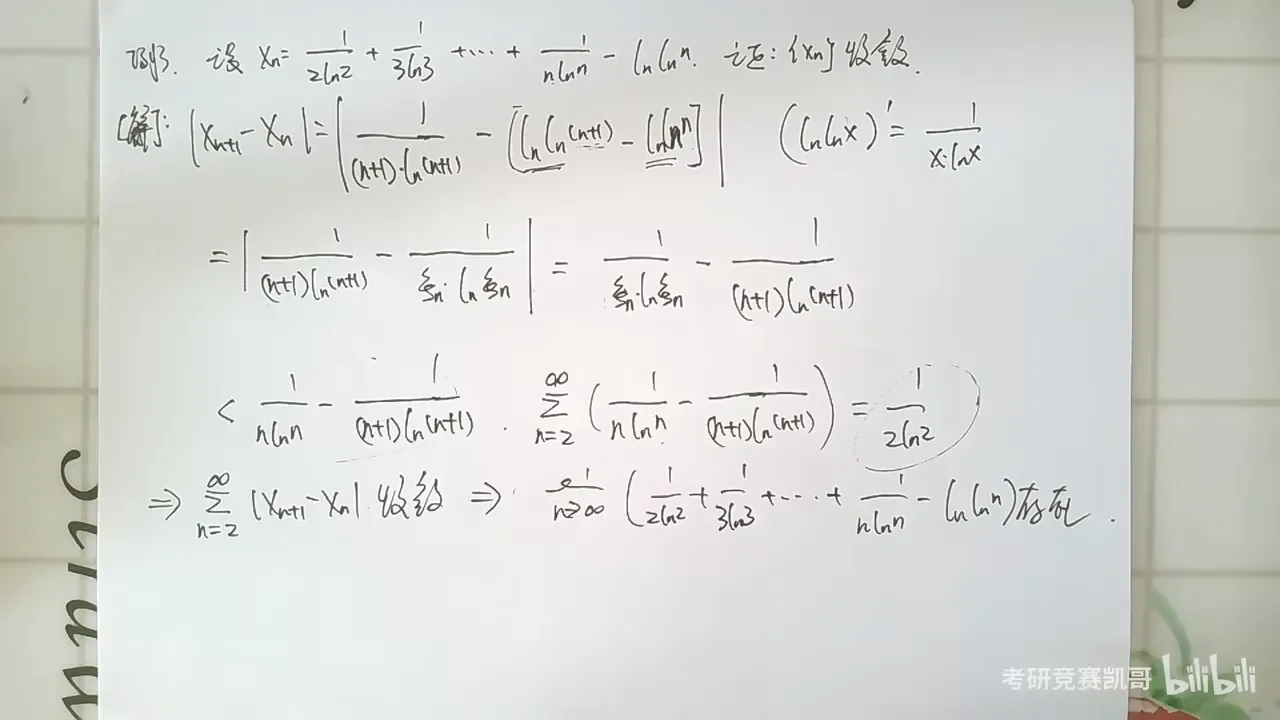 例. 设 xn = 1/(2ln2) + 1/(3ln3) + ··· + 1/(nlnn) - lnlnn. 证: {xn} 收敛.
[解]: |xn+1 - xn| = | 1/((n+1)·ln(n+1)) - [lnln(n+1) - lnlnn] | (lnlnx)' = 1/(x·lnx)
= | 1/((n+1)ln(n+1)) - 1/(ξn·lnξn) | = 1/(ξn·lnξn) - 1/((n+1)ln(n+1))
< 1/(nlnn) - 1/((n+1)ln(n+1)) . ∑_{n=2}^{∞} ( 1/(nlnn) - 1/((n+1)ln(n+1)) ) = 1/(2ln2)
⇒ ∑_{n=2}^{∞} |xn+1 - xn| 收敛 ⇒ n→∞ ( 1/(2ln2) + 1/(3ln3) + ··· + 1/(nlnn) - lnlnn ) 存在 .
考研竞赛凯哥 bilibili